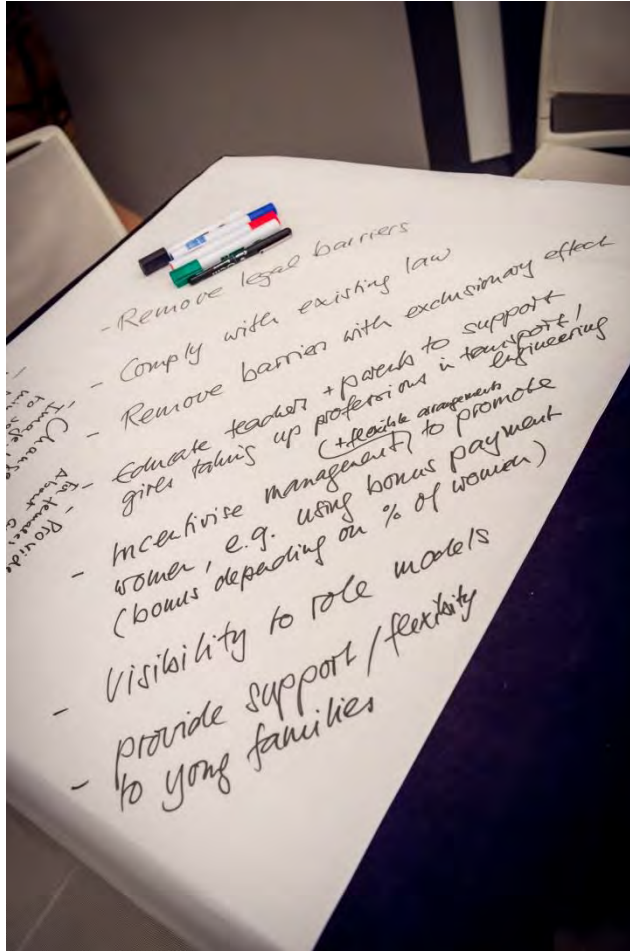 - Remove legal barriers
- Comply with existing law
- Remove barriers with exclusionary effect
- Educate teachers + parents to support
girls taking up professions in transport/
engineering
(+flexible arrangements)
- Incentivise management to promote
women, e.g. using bonus payment
(bonus depending on % of women)
- Visibility to role models
- provide support/flexibility
to yong families
Change
Image
- Provide
for females
About